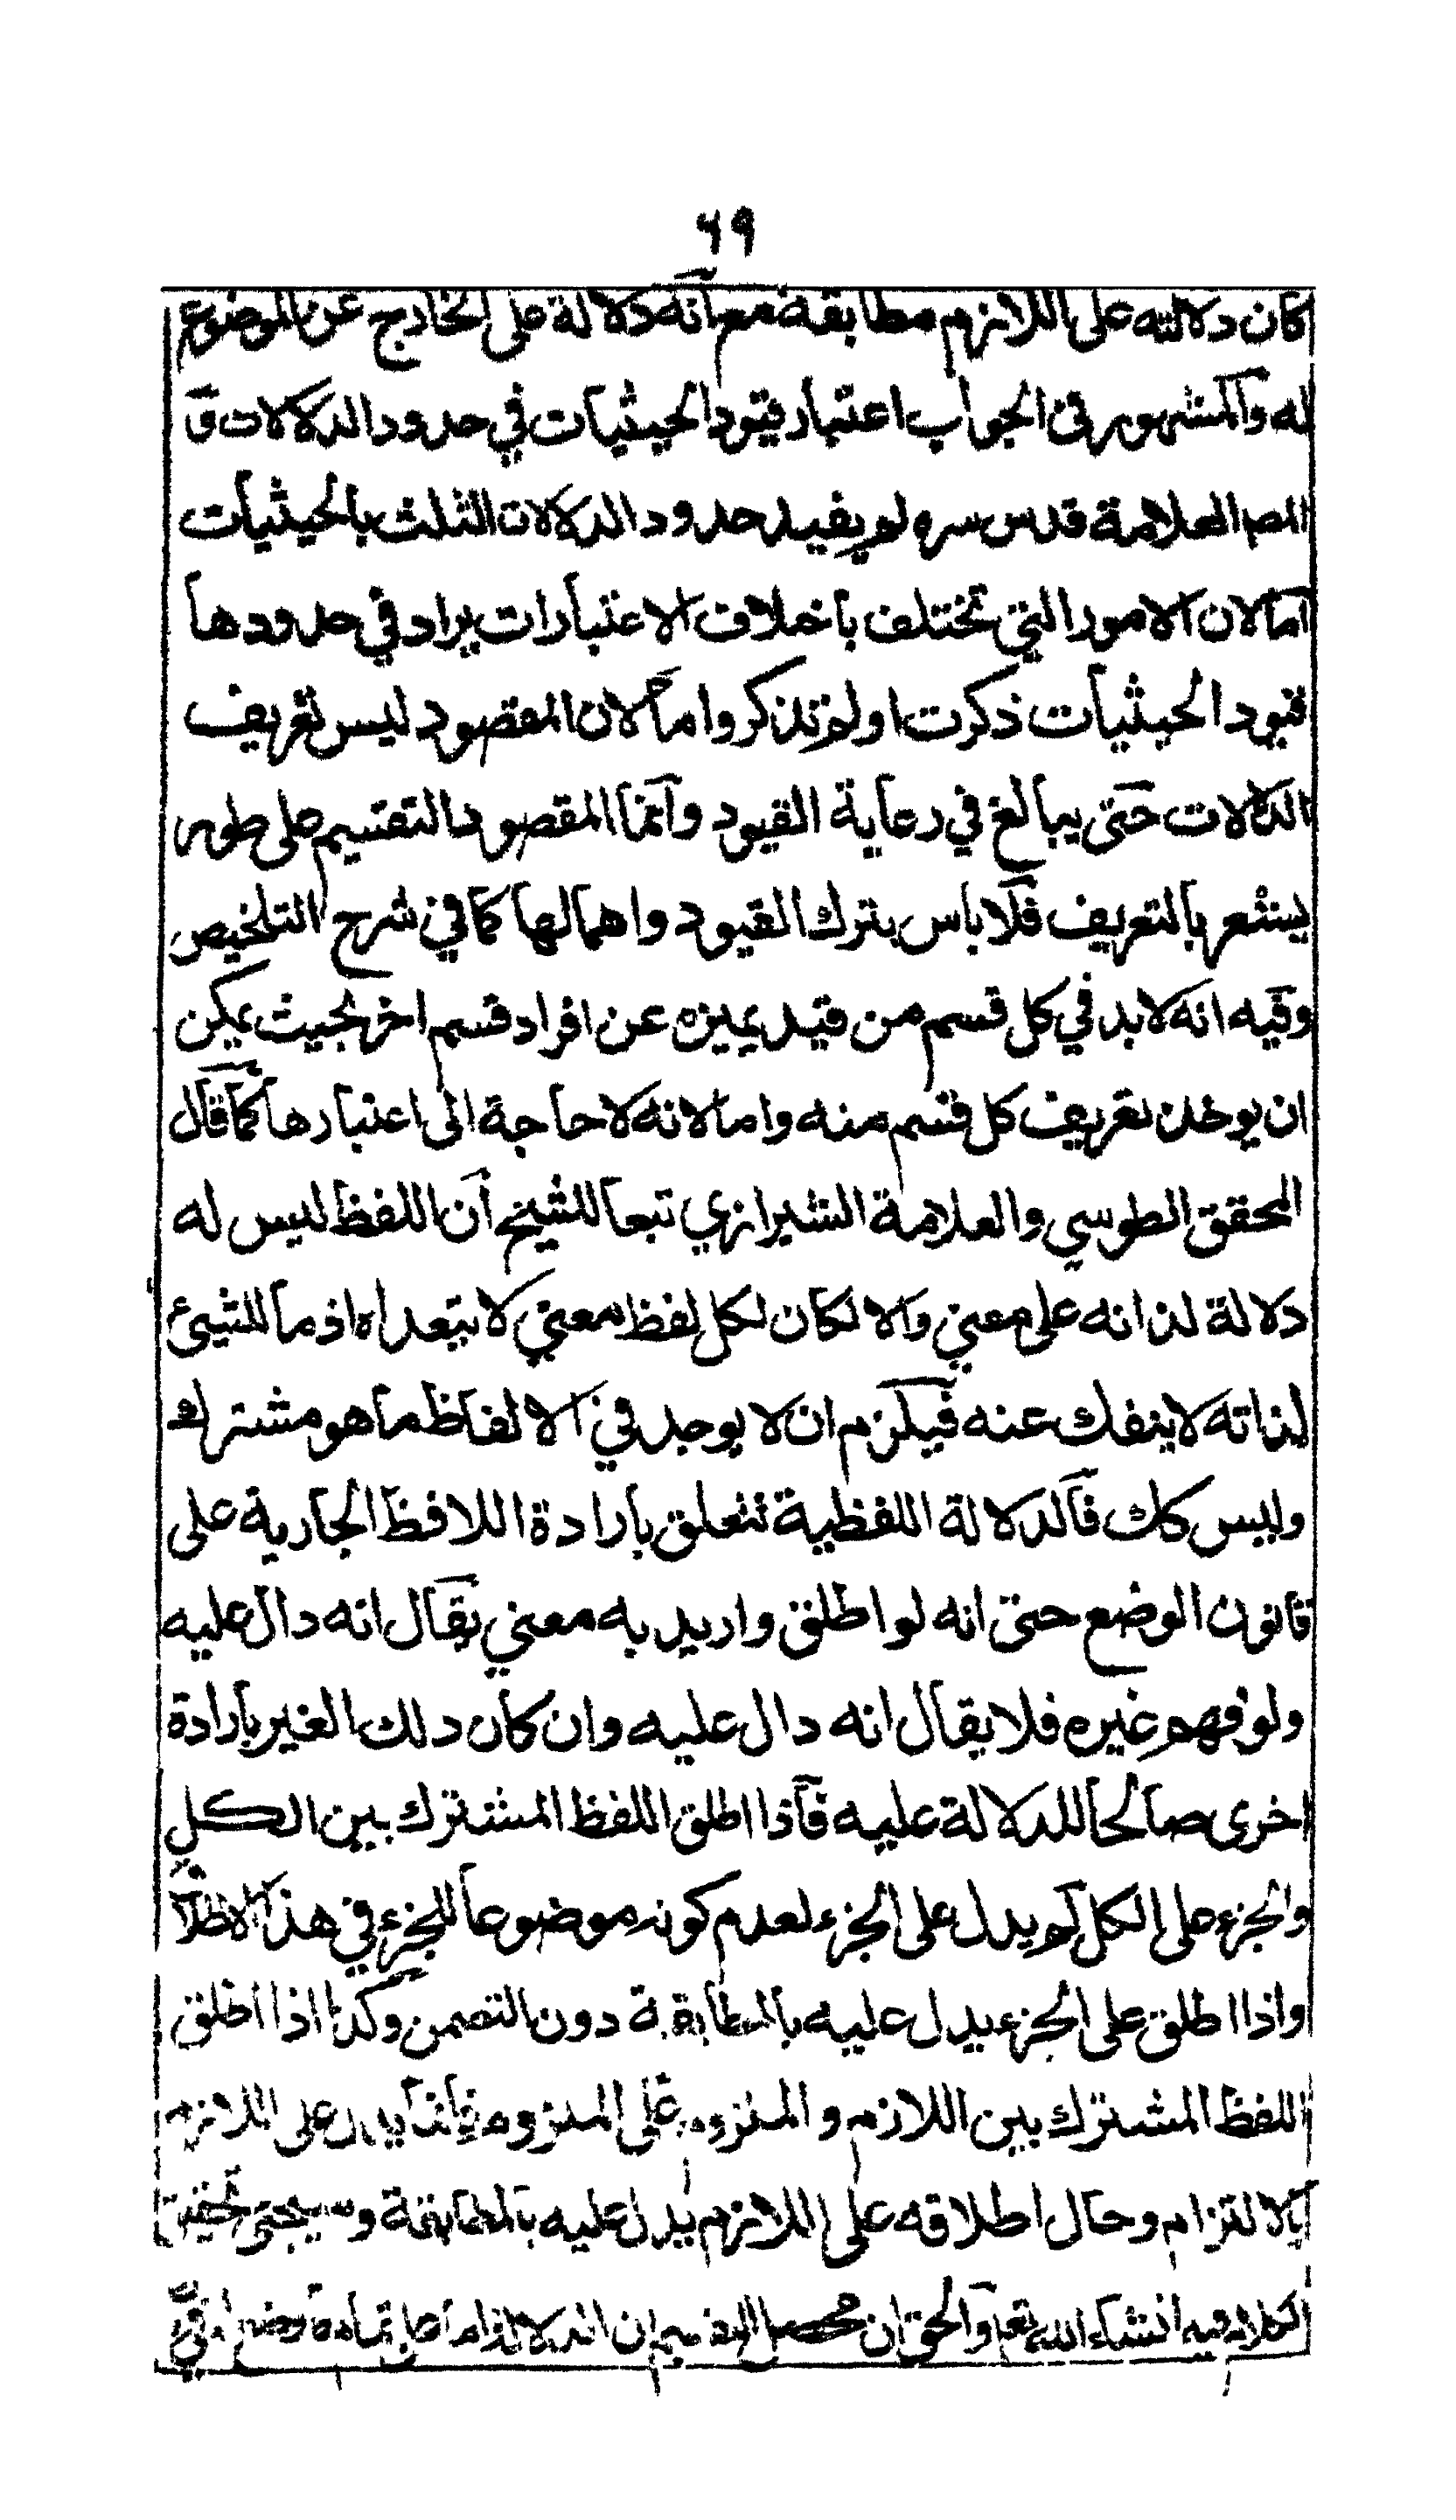 ٦٩
كان دلالته على اللازم مطابقة مع انه دلالة على الخارج عن الموضوع
له والمشهور في الجواب اعتبار قيود الحيثيات في حدود الدلالات و
المصـ العلامة قدس سره لم يقيد حدود الدلالات الثلث بالحيثيات
اما لان الامور التي تختلف باختلاف الاعتبارات يراد في حدودها
قيود الحيثيات ذكرت او لم تذكر واما لان المقصود ليس تعريف
الدلالات حتى يبالغ في رعاية القيود وانما المقصود التقسيم على طور
يشعر بالتعريف فلا باس بترك القيود واهمالها كما في شرح التلخيص
وفيه انه لا بد في كل قسم من قيد يميزه عن افراد قسم اخر بحيث يمكن
ان يوخذ تعريف كل قسم منه واما لانه لا حاجة الى اعتبارها كما قال
المحقق الطوسي والعلامة الشيرازي تبعا للشيخ ان اللفظ ليس له
دلالة لذاته على معني والا لكان لكل لفظ معني لا يتعداه اذ ما للشيئ
لذاته لا ينفك عنه فيلزم ان لا يوجد في الالفاظ ما هو مشترك
وليس كك فالدلالة اللفظية تتعلق بارادة اللافظ الجارية على
قانون الوضع حتى انه لو اطلق واريد به معني يقال انه دال عليه
ولو فهم غيره فلا يقال انه دال عليه وان كان ذلك الغير بارادة
اخرى صالحا للدلالة عليه فاذا اطلق اللفظ المشترك بين الكل
والجزء على الكل لم يدل على الجزء لعدم كونه موضوعا للجزء في هذا الاطلا
واذا اطلق على الجزء يدل عليه بالمطابقة دون التضمن وكذا اذا اطلق
اللفظ المشترك بين اللازم و الملزوم على الملزوم يدل على اللازم
بالالتزام وحال اطلاقه على اللازم يدل عليه بالمطابقة وسيجئ تحقيق
الكلام فيه انشاء الله تعـ والحق ان محصل التقسيم ان الدلالة اما